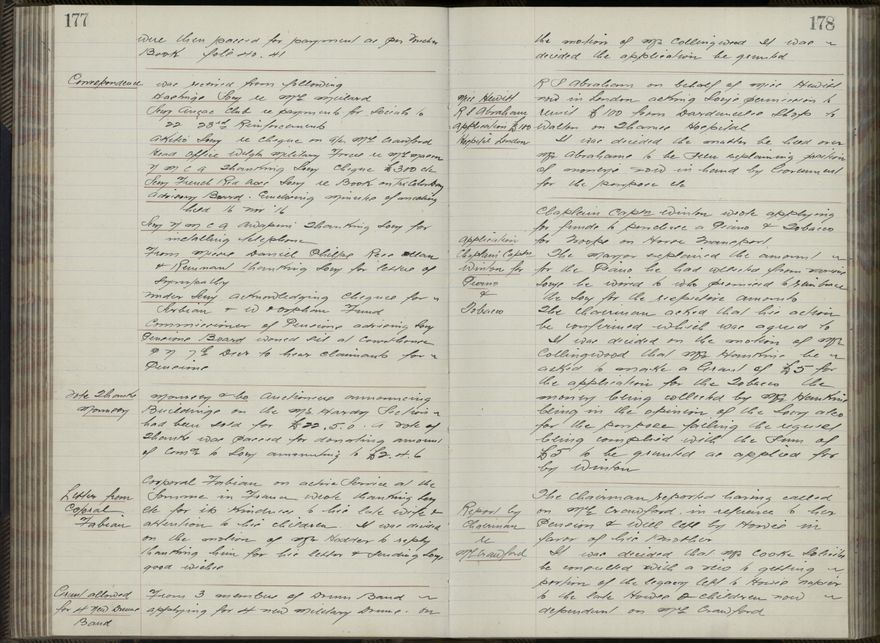 177
were then passed for payment as per Voucher
Book folio No. 41
Correspondence was received from following
Hastings Socy re Mr Millard
Returned Club re payments for Socials to
22 23rd Reinforcements
Akitio Socy re Cheque on a/c Mrs Crawford
Head Office Wgtn Military Forces re
Y M C A thanking Socy Cheque £300 etc
Socy French Red Cross Socy re Book
Advisory Board. Enclosing minutes of meeting
held 16 Nov 16
Socy Y M C A Awapuni thanking Socy for
installing telephone
From Daniel Phillips Rose
& Renment thanking Socy for letter of
Sympathy
Under Secy acknowledging cheques for
Serbian & W & Orphan Fund
Commissioner of Pensions advising Socy
Pensions Board would sit at Courthouse
7th Decr to hear claimants for
Pensions
Vote Thanks
Auctioneers announcing
Buildings on the Mr Hardy Section
had been sold for £22.5.0. A Vote of
Thanks was passed for donating amount
of Comn to Socy amounting to £2.4.6
Letter from
Corporal
Fabian
Corporal Fabian on active Service at the
Somme in France wrote thanking Socy
etc for its kindness to his late wife &
attention to his children It was decided
on the motion of Mr Hodder to reply
thanking him for his letter & sending Socy
good wishes
Grant allowed
for 4 New Drums
Band
From 3 members of Drum Band
applying for 4 new Military Drums. On
178
the motion of Mr Collingwood It was
decided the application be granted
Miss Hewitt
R S Abraham
Application £100
Hospital London
R S Abraham on behalf of Miss Hewitt
now in London asking Socys permission to
remit £100 from Dardanelles Shop to
Walton on Thames Hospital
It was decided the matter be held over
Mr Abrahams to be seen explaining position
of moneys now in hand by Government
for the purpose etc
Application
Chaplain Captn
Winton for
Piano
&
Tobacco
Chaplain Captn Winton wrote applying
for funds to purchase a Piano & Tobacco
for Troops on Horse Transport
The Mayor explained the amount
for the Piano he had collected from various
Socys he wired to who promised to reimburse
the Socy for the respective amounts
The Chairman asked that his action
be confirmed which was agreed to
It was decided on the motion of Mr
Collingwood that Mr Hankins be
asked to make a Grant of £5 for
the application for the Tobacco the
money being collected by Mr Hankins
being in the opinion of the Socy also
for the purpose failing the request
being complied with the sum of
£5 to be granted as applied for
by Winton
Report by
Chairman
re
Mrs Crawford
The Chairman reported having called
on Mrs Crawford in reference to her
Pension & will left by Howie in
favor of his Mother
It was decided that Mr Cooke Solicitor
be consulted with a view to getting
portion of the legacy left to Howies
to the late Howies children now
dependant on Mrs Crawford